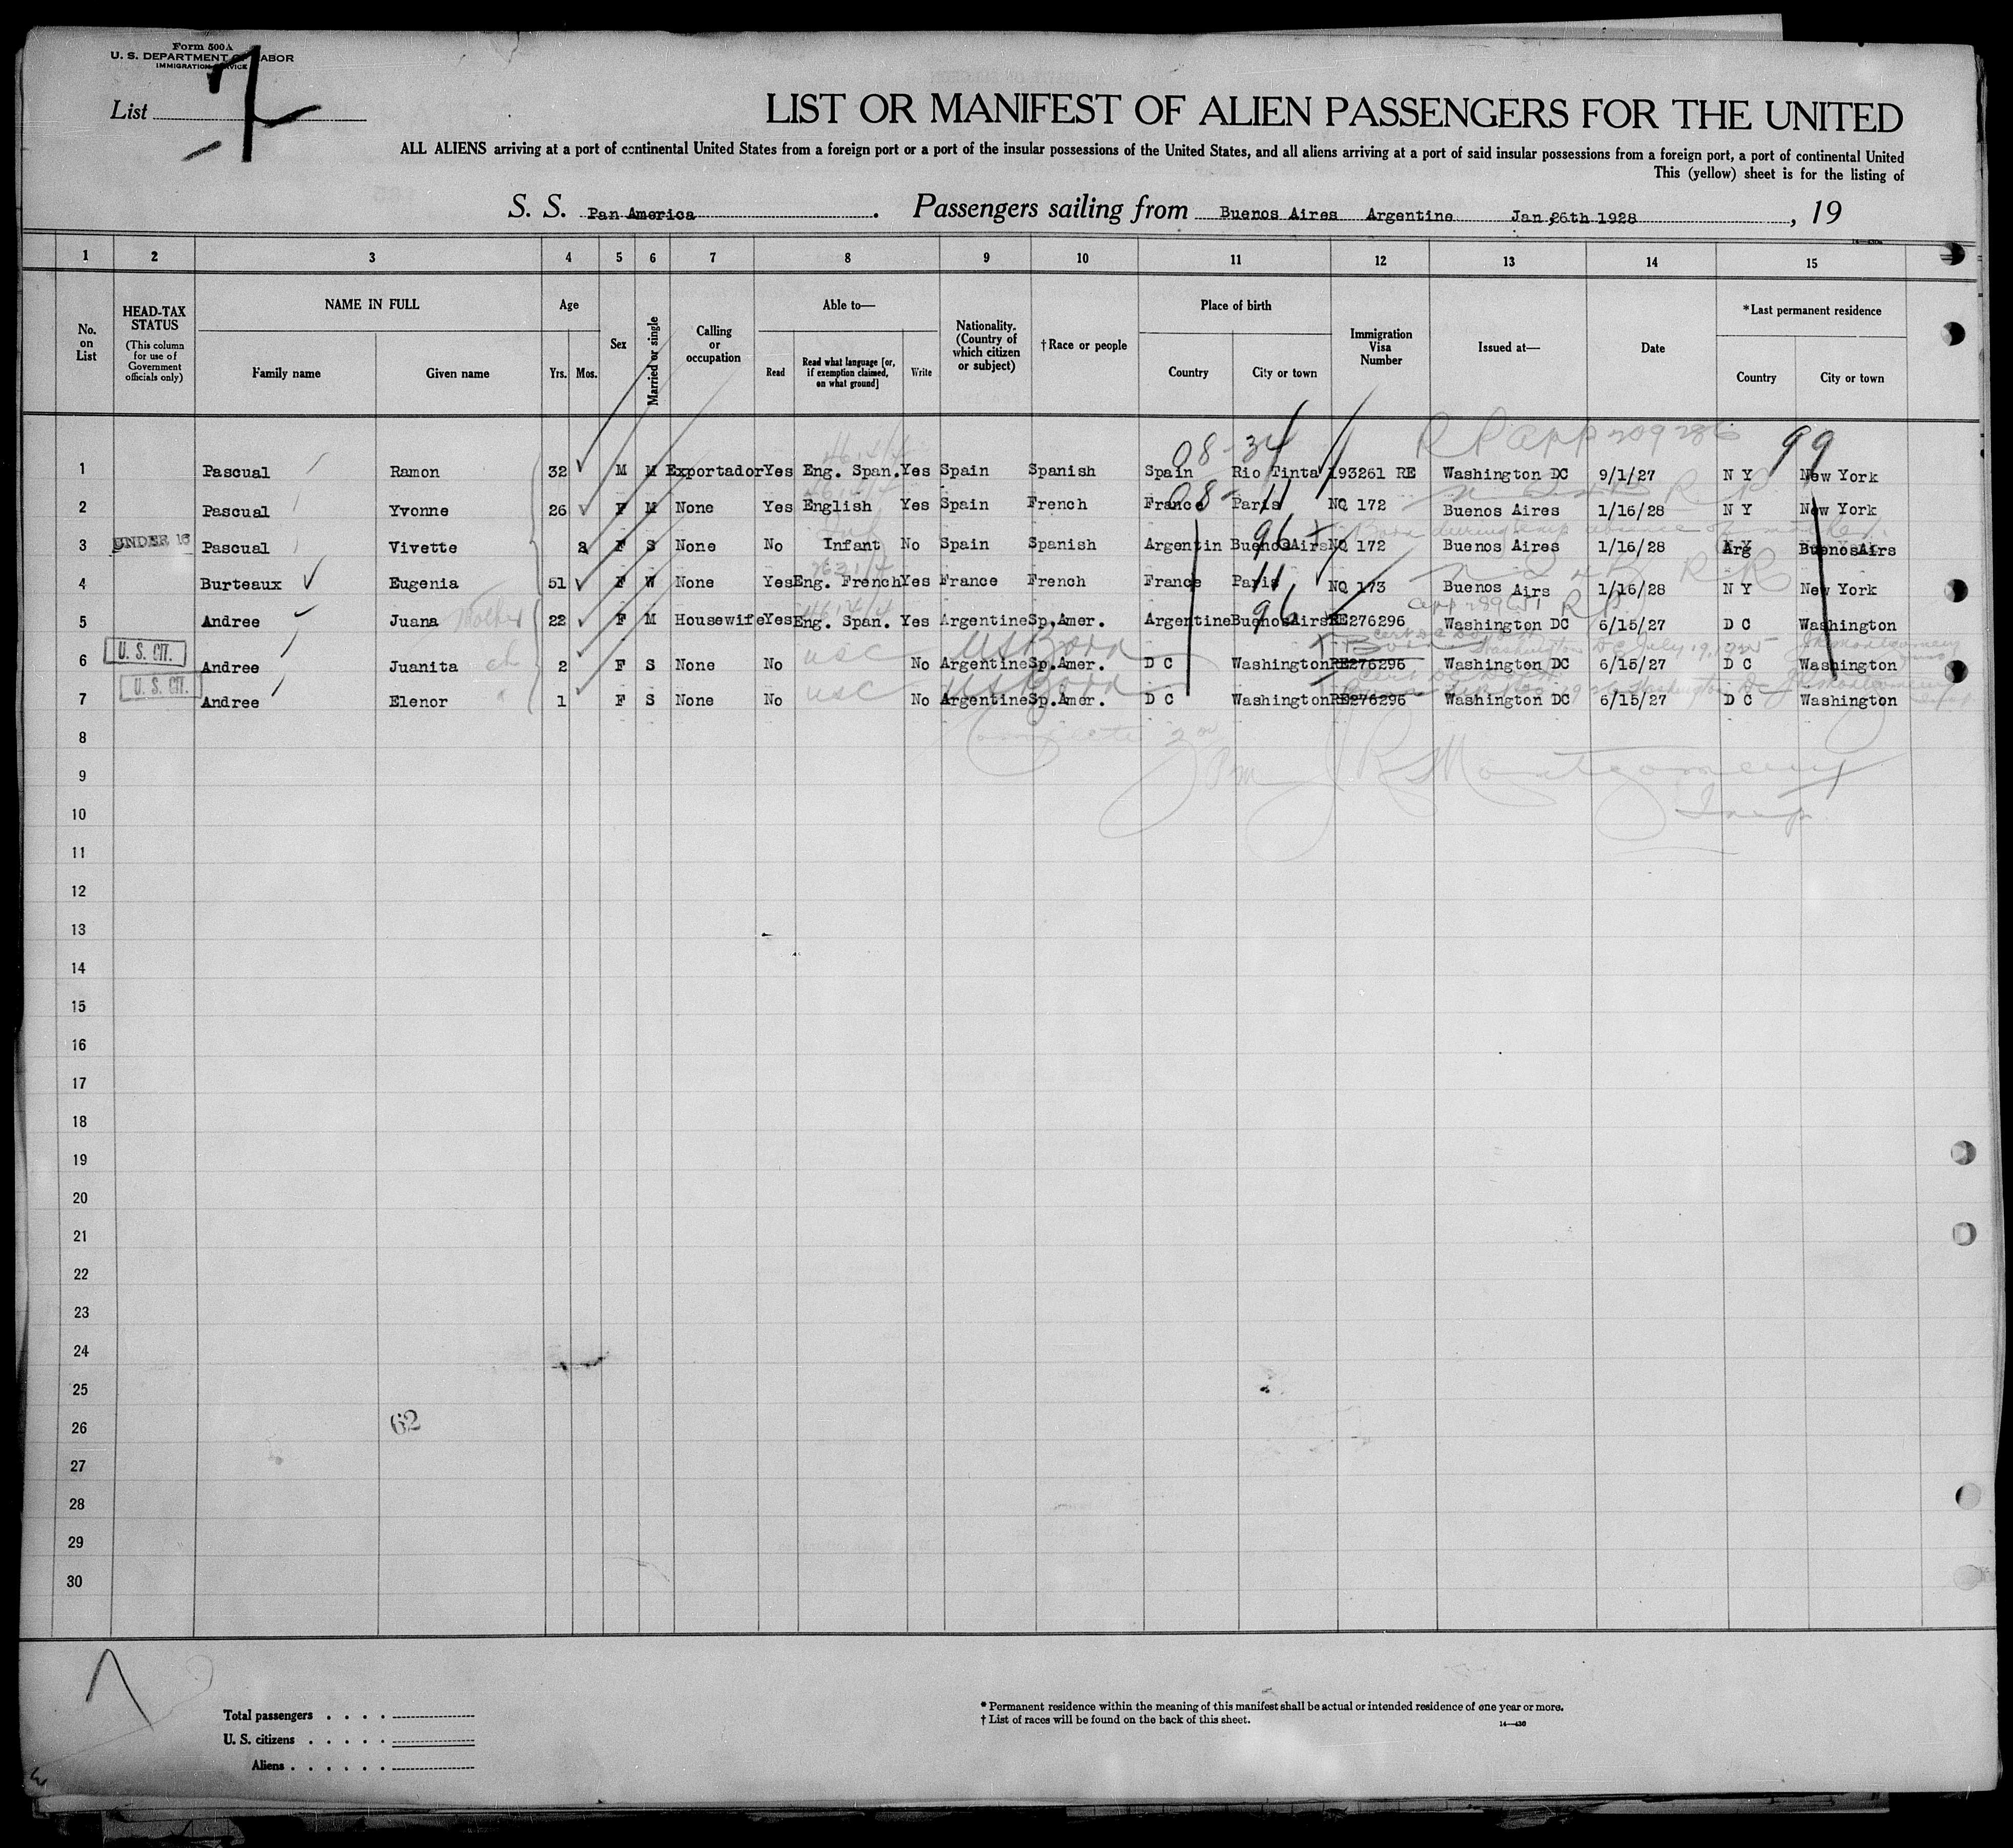 Form 500A
U. S. DEPARTMENT OF LABOR
IMMIGRATION SERVICE
List 7
LIST OR MANIFEST OF ALIEN PASSENGERS FOR THE UNITED
ALL ALIENS arriving at a port of continental United States from a foreign port or a port of the insular possessions of the United States, and all aliens arriving at a port of said insular possessions from a foreign port, a port of continental United
This (yellow) sheet is for the listing of
S. S. Pan America. Passengers sailing from Buenos Aires Argentine Jan, 26th 1928, 19
14—430
1 2 3 4 5 6 7 8 9 10 11 12 13 14 15
No. on List
HEAD-TAX STATUS (This column for use of Government officials only)
NAME IN FULL
Family name Given name
Age
Yrs. Mos.
Sex
Married or single
Calling or occupation
Able to—
Read Read what language [or, if exemption claimed, on what ground] Write
Nationality. (Country of which citizen or subject)
†Race or people
Place of birth
Country City or town
Immigration Visa Number
Issued at—
Date
*Last permanent residence
Country City or town
08-34 R P app 209286 99
1 Pascual Ramon 32 M M Exportador Yes Eng. Span. Yes Spain Spanish Spain Rio Tinta 193261 RE Washington DC 9/1/27 N Y New York
08-11
2 Pascual Yvonne 26 F M None Yes English Yes Spain French France Paris NQ 172 Buenos Aires 1/16/28 N Y New York
96 Born during temp absence of mother
3 UNDER 16 Pascual Vivette 2 F S None No Infant No Spain Spanish Argentin BuenosAirs NQ 172 Buenos Aires 1/16/28 Arg BuenosAirs
11
4 Burteaux Eugenia 51 F W None Yes Eng. French Yes France French France Paris NQ 173 Buenos Airs 1/16/28 N Y New York
96 R P
5 Andree Juana Mother 22 F M Housewife Yes Eng. Span. Yes Argentine Sp.Amer. Argentine BuenosAirs RE276296 Washington DC 6/15/27 D C Washington
U. S. CIT. USC US Born
6 Andree Juanita ch 2 F S None No No Argentine Sp.Amer. D C Washington RE276296 Washington DC 6/15/27 D C Washington
U. S. CIT. USC US Born
7 Andree Elenor " 1 F S None No No Argentine Sp.Amer. D C Washington RE276296 Washington DC 6/15/27 D C Washington
8 Complete 2
9 J R Montgomery
10 Insp
11
12
13
14
15
16
17
18
19
20
21
22
23
24
25
26 62
27
28
29
30
Total passengers
U. S. citizens
Aliens
* Permanent residence within the meaning of this manifest shall be actual or intended residence of one year or more.
† List of races will be found on the back of this sheet.
14—430